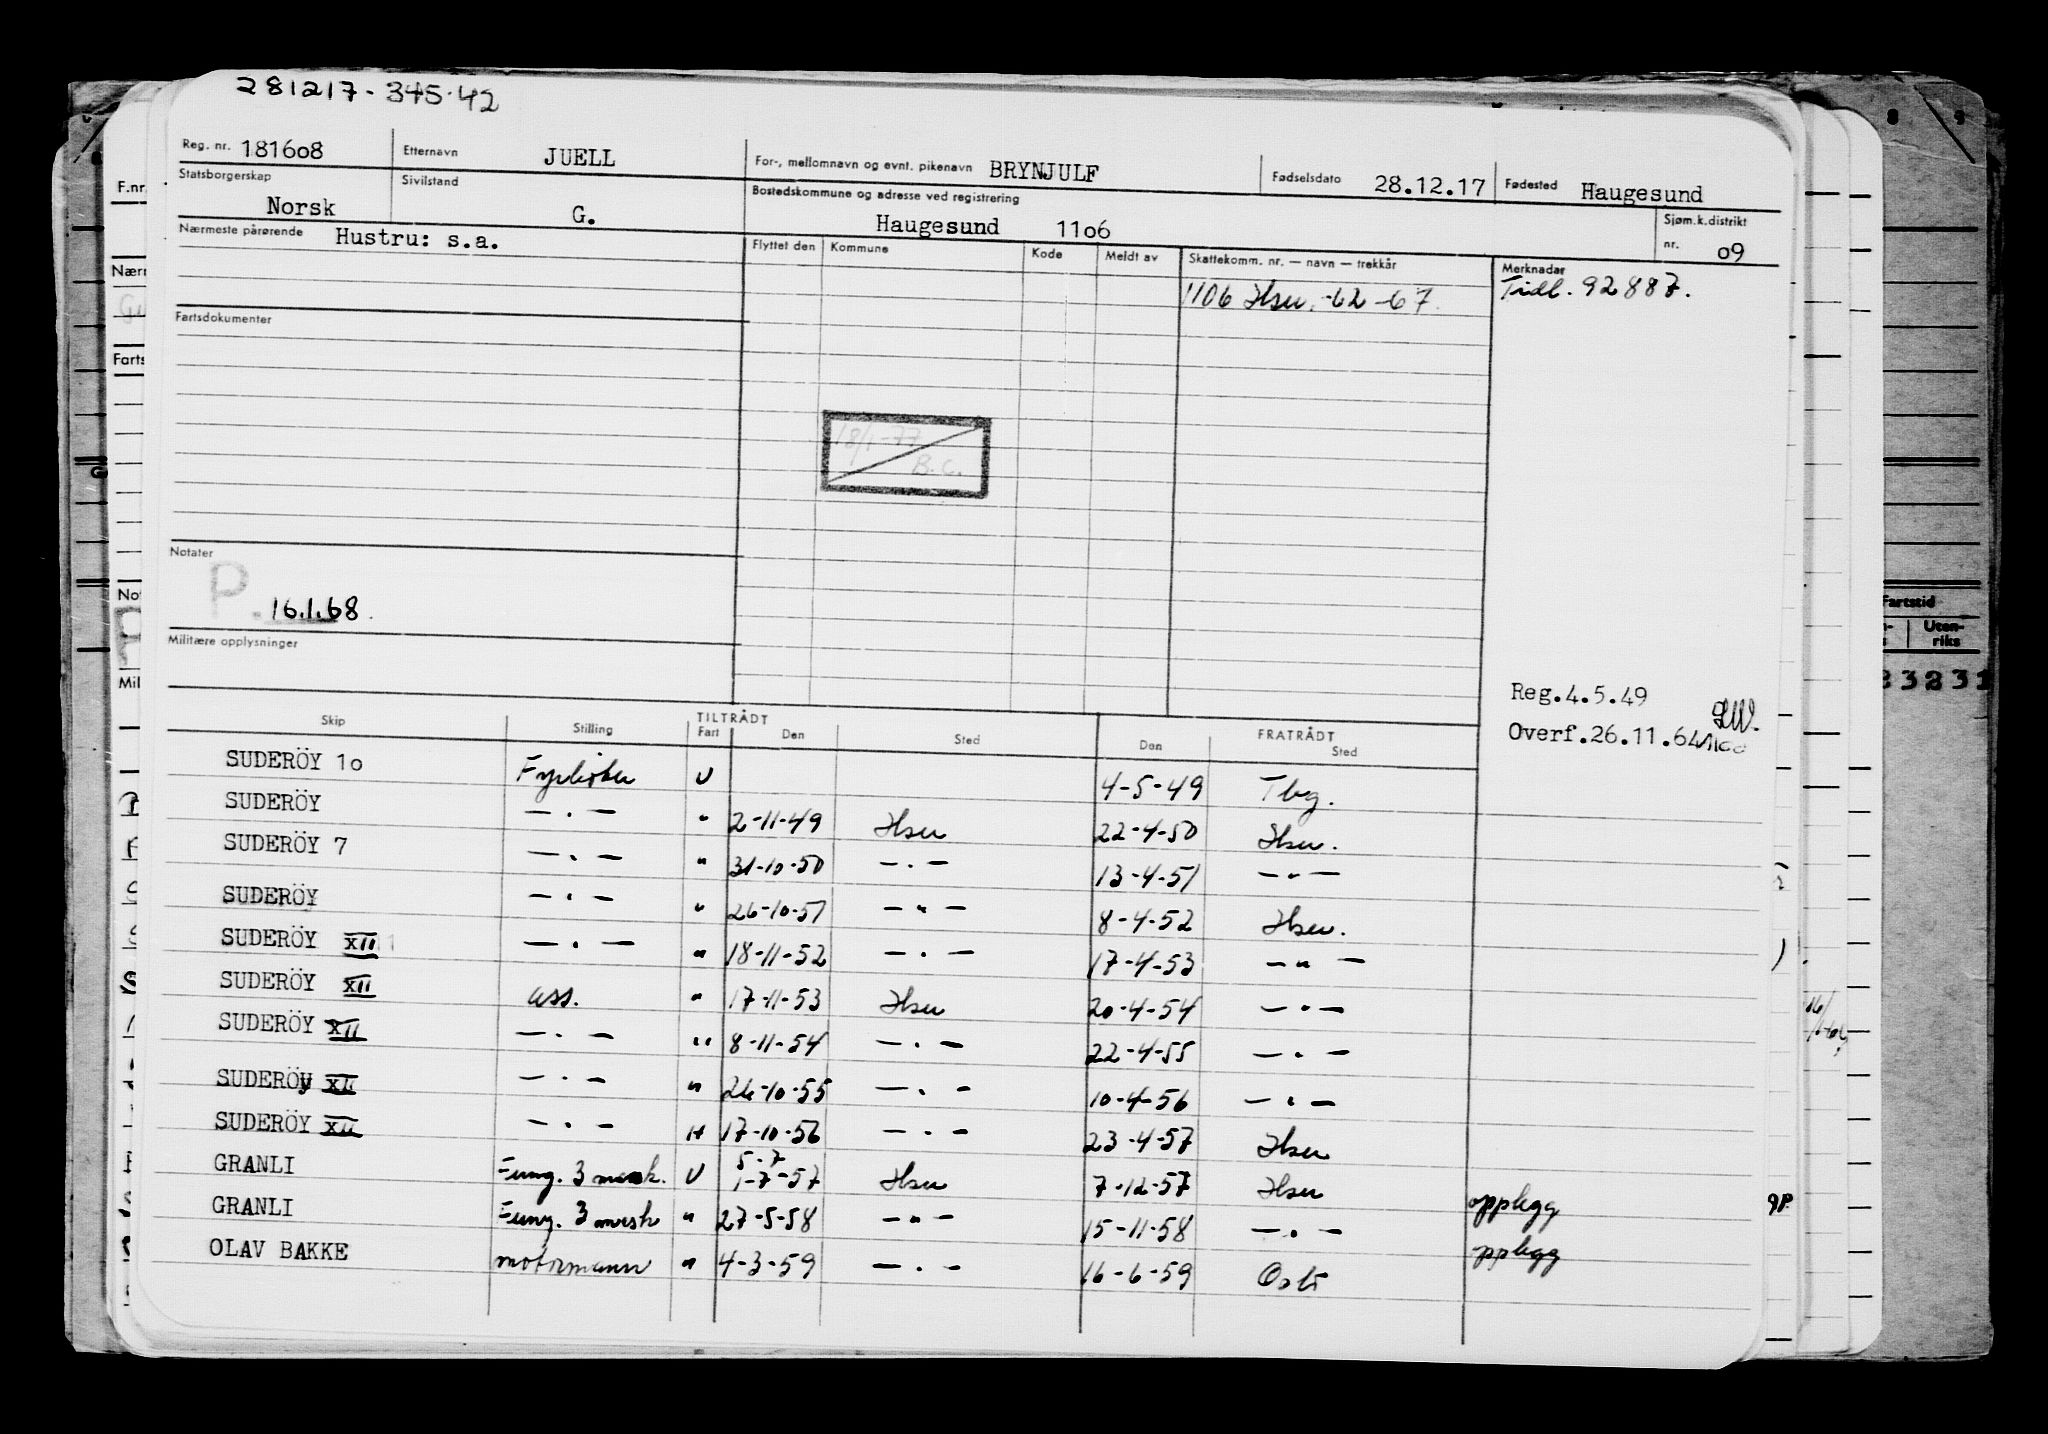 281217-345.42
Reg. nr. 181608 Etternavn JUELL For-, mellomnavn og evnt. pikenavn BRYNJULF Fødselsdato 28.12.17 Fødested Haugesund
Statsborgerskap Norsk Sivilstand G. Bostedskommune og adresse ved registrering Haugesund 1106 Sjøm.k.distrikt nr. 09
Nærmeste pårørende Hustru: s.a. Flyttet den Kommune Kode Meldt av Skattekomm. nr. — navn — trekkår Merknader
1106 Hsu. -62-67. Tidl. 92887.
Fartsdokumenter
18/1-77
B.C.
Notater
P. 16.1.68.
Militære opplysninger
Reg.4.5.49
Overf.26.11.64
Skip Stilling TILTRÅDT FRATRÅDT
Fart Den Sted Den Sted
SUDERÖY 10 Fyrbøter U 4-5-49 Tbg.
SUDERÖY —.— " 2-11-49 Hsu 22-4-50 Hsu.
SUDERÖY 7 —.— " 31-10-50 —.— 13-4-51 —"—
SUDERÖY —.— " 26-10-51 —"— 8-4-52 Hsu.
SUDERÖY XII —.— " 18-11-52 —.— 17-4-53 —"—
SUDERÖY XII ass. " 17-11-53 Hsu 20-4-54 —.—
SUDERÖY XII —.— " 8-11-54 —.— 22-4-55 —.—
SUDERÖY XII —.— " 26-10-55 —.— 10-4-56 —.—
SUDERÖY XII —.— " 17-10-56 —.— 23-4-57 Hsu
5-7
GRANLI Fung. 3 mask. U 1-7-57 Hsu 7-12-57 Hsu opplegg
GRANLI Fung. 3 mask " 27-5-58 —"— 15-11-58 —.— opplegg
OLAV BAKKE motormann " 4-3-59 —.— 16-6-59 Oslo
F.nr.
Fartstid
Uten-
riks